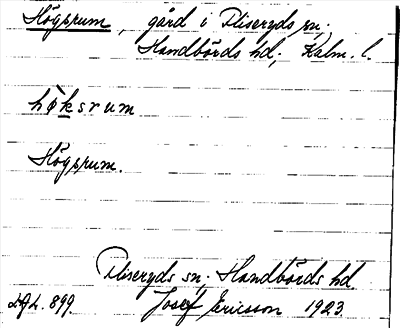 Högsrum, gård i Fliseryds sn;
Handbörds hd; Kalm. l.
høksrum
Högsrum.
Fliseryds sn; Handbörds hd
899. Josef Ericsson 1923